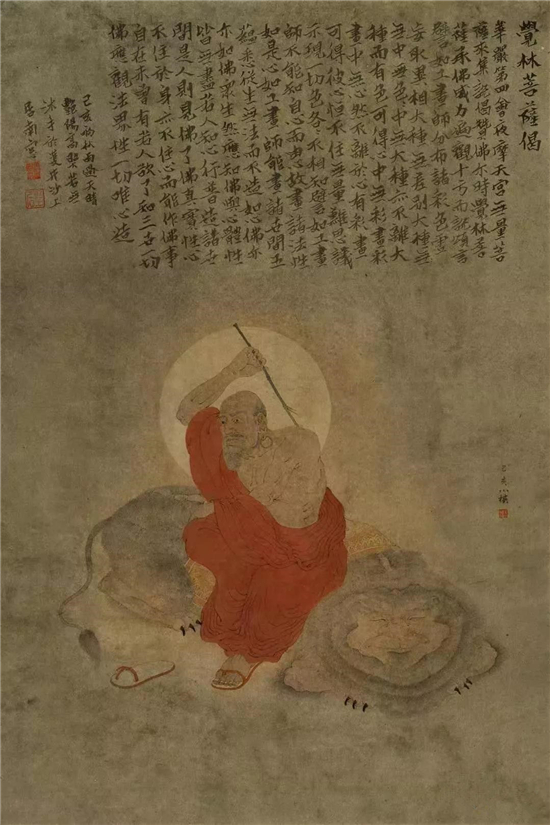 覺林菩薩偈
華嚴第四會夜摩天宮無量菩
薩來集說偈贊佛尔時覺林菩
薩承佛威力遍觀十方而說頌言
譬如工畫師分布諸彩色虛
妄取異相大種無差別大種
中無色色中無大種亦不離大
種而有色可得心中無彩畫彩
畫中無心然不離於心有彩畫
可得彼心恒不住無量難思議
示現一切色各各不相知譬如工畫
師不能知自心而由心故畫諸法性
如是心如工畫師能畫諸世間五
蘊悉從生無法而不造如心佛亦
尔如佛眾生然應知佛與心體性
皆無盡若人知心行普造諸世
間是人則見佛了佛真實性心
不住於身身亦不住心而能作佛事
自在未曾有若人欲了知三世一切
佛應觀法界性一切唯心造
己亥初秋雨過天晴